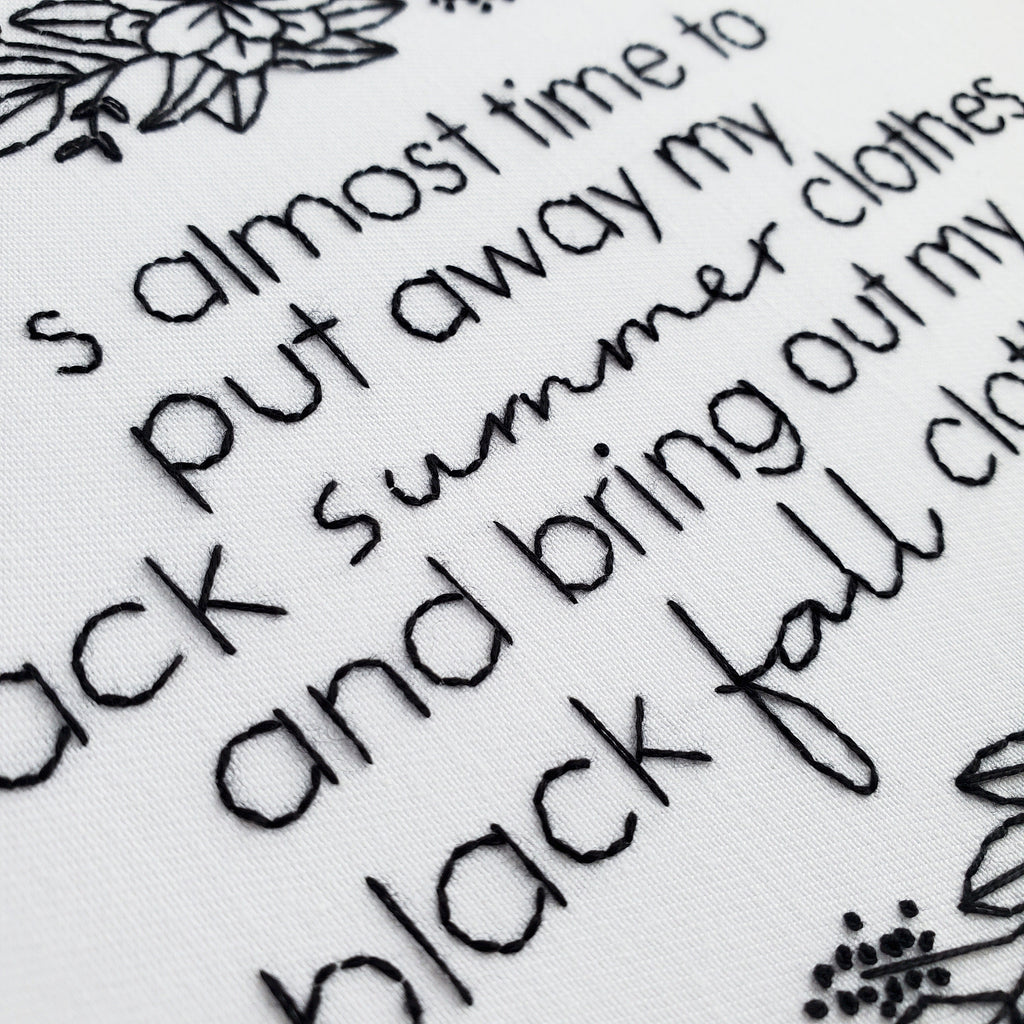 s almost time to
put away my
ack summer clothes
and bring out my
black fall clot